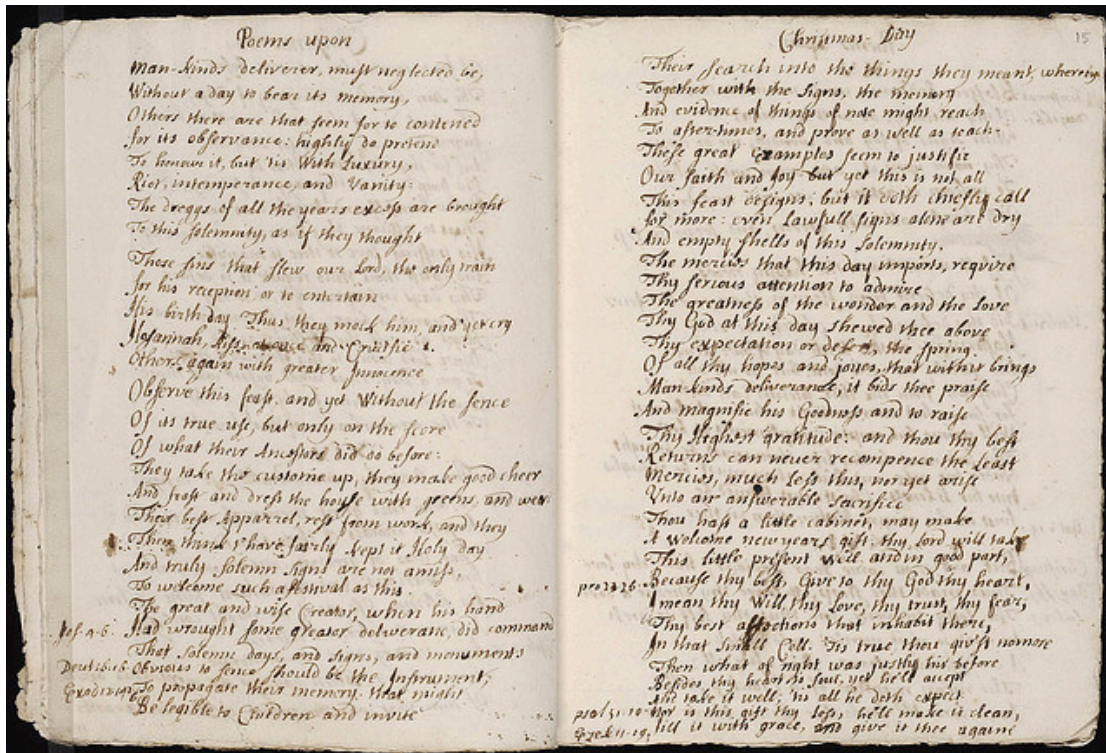 Poems upon
Man-kinds deliverer, must neglected be,
Without a day to bear its memory,
Others there are that seem for to contened
for its observance: highly do pretend
To honour it, but 'tis With Luxury,
Riot, intemperance, and Vanity:
The dreggs of all the years excess are brought
To this solemnity, as if they thought
Those sins that slew our Lord, the only train
for his reception or to entertain
His birth day. Thus they mock him, and yet cry
Hosannah, and Crucifie
Others again with greater Innocence
Observe this feast, and yet Without the sence
Of its true use, but only on the score
Of what their Ancestors did do before:
They take the custome up, they make good cheer
And feast and dress the house with greens, and wear
Their best Apparrel, rest from work, and they
Then think t'have fairly kept it Holy day
And truly solemn signs are not amiss,
To welcome such a festival as this.
The great and wise Creator, when his hand
Jos. 4-6. Had wrought some greater deliverance, did command
That solemn days, and signs, and monuments
Deut 16-16 Obvious to sence should be the Instrument,
Exod To propagate their memory that might
Be legible to Children and invite
Christmas-Day 15
Their search into the things they meant, wherein
Together with the signs, the memory
And evidence of things of note might reach
To after-times, and prove as well as teach.
These great Examples seem to justifie
Our faith and Joy but yet this is not all
This feast designs; but it doth chiefly call
for more: even Lawfull signs alone are dry
And empty shells of this Solemnity.
The mercies that this day imports, require
Thy serious attention to admire
The greatness of the wonder and the Love
Thy God at this day shewed thee above
Thy expectation or the spring
Of all thy hopes and joyes, that with it brings
Man-kinds deliverance, it bids thee praise
And magnifie his Goodness and to raise
Thy Highest gratitude: and thou thy best
Returns can never recompence the least
Mercies, much less this, nor yet arise
Unto an answerable Sacrifice
Thou hast a little cabinet, may make
A Welcome new years gift, thy Lord will take
This little present Well and in good part,
pro 23-26. Because thy best, Give to thy God thy heart,
I mean thy Will, thy Love, thy trust, thy fear,
Thy best affections that inhabit there,
In that small Cell. 'Tis true thou giv'st no more
Then what of right was justly his before
Besides thy heart is foul, yet he'll accept
And take it well, 'tis all he doth expect
psal 51-10 Nor is this gift thy loss, he'll make it clean,
Ezek 11-19, fill it with grace, and give it thee againe